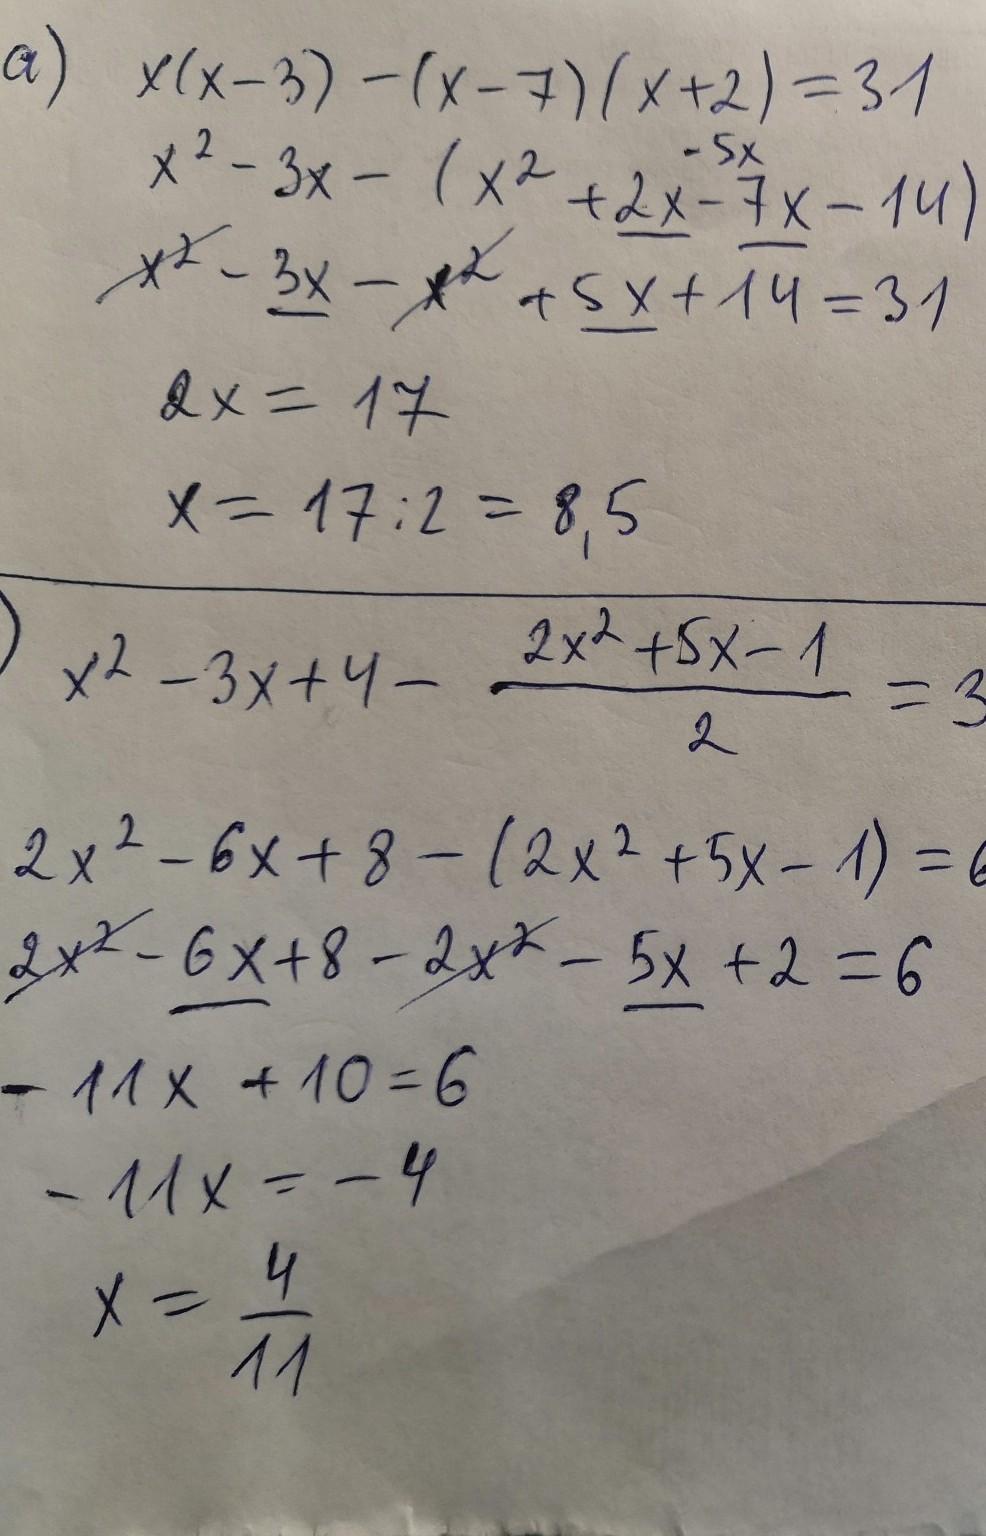 a) x(x-3) - (x-7)(x+2) = 31
-5x
x² - 3x - (x² + 2x - 7x - 14)
x² - 3x - x² + 5x + 14 = 31
2x = 17
x = 17:2 = 8,5
) x² - 3x + 4 - \frac{2x² + 5x - 1}{2} = 3
2x² - 6x + 8 - (2x² + 5x - 1) = 6
2x² - 6x + 8 - 2x² - 5x + 2 = 6
- 11x + 10 = 6
- 11x = - 4
x = \frac{4}{11}